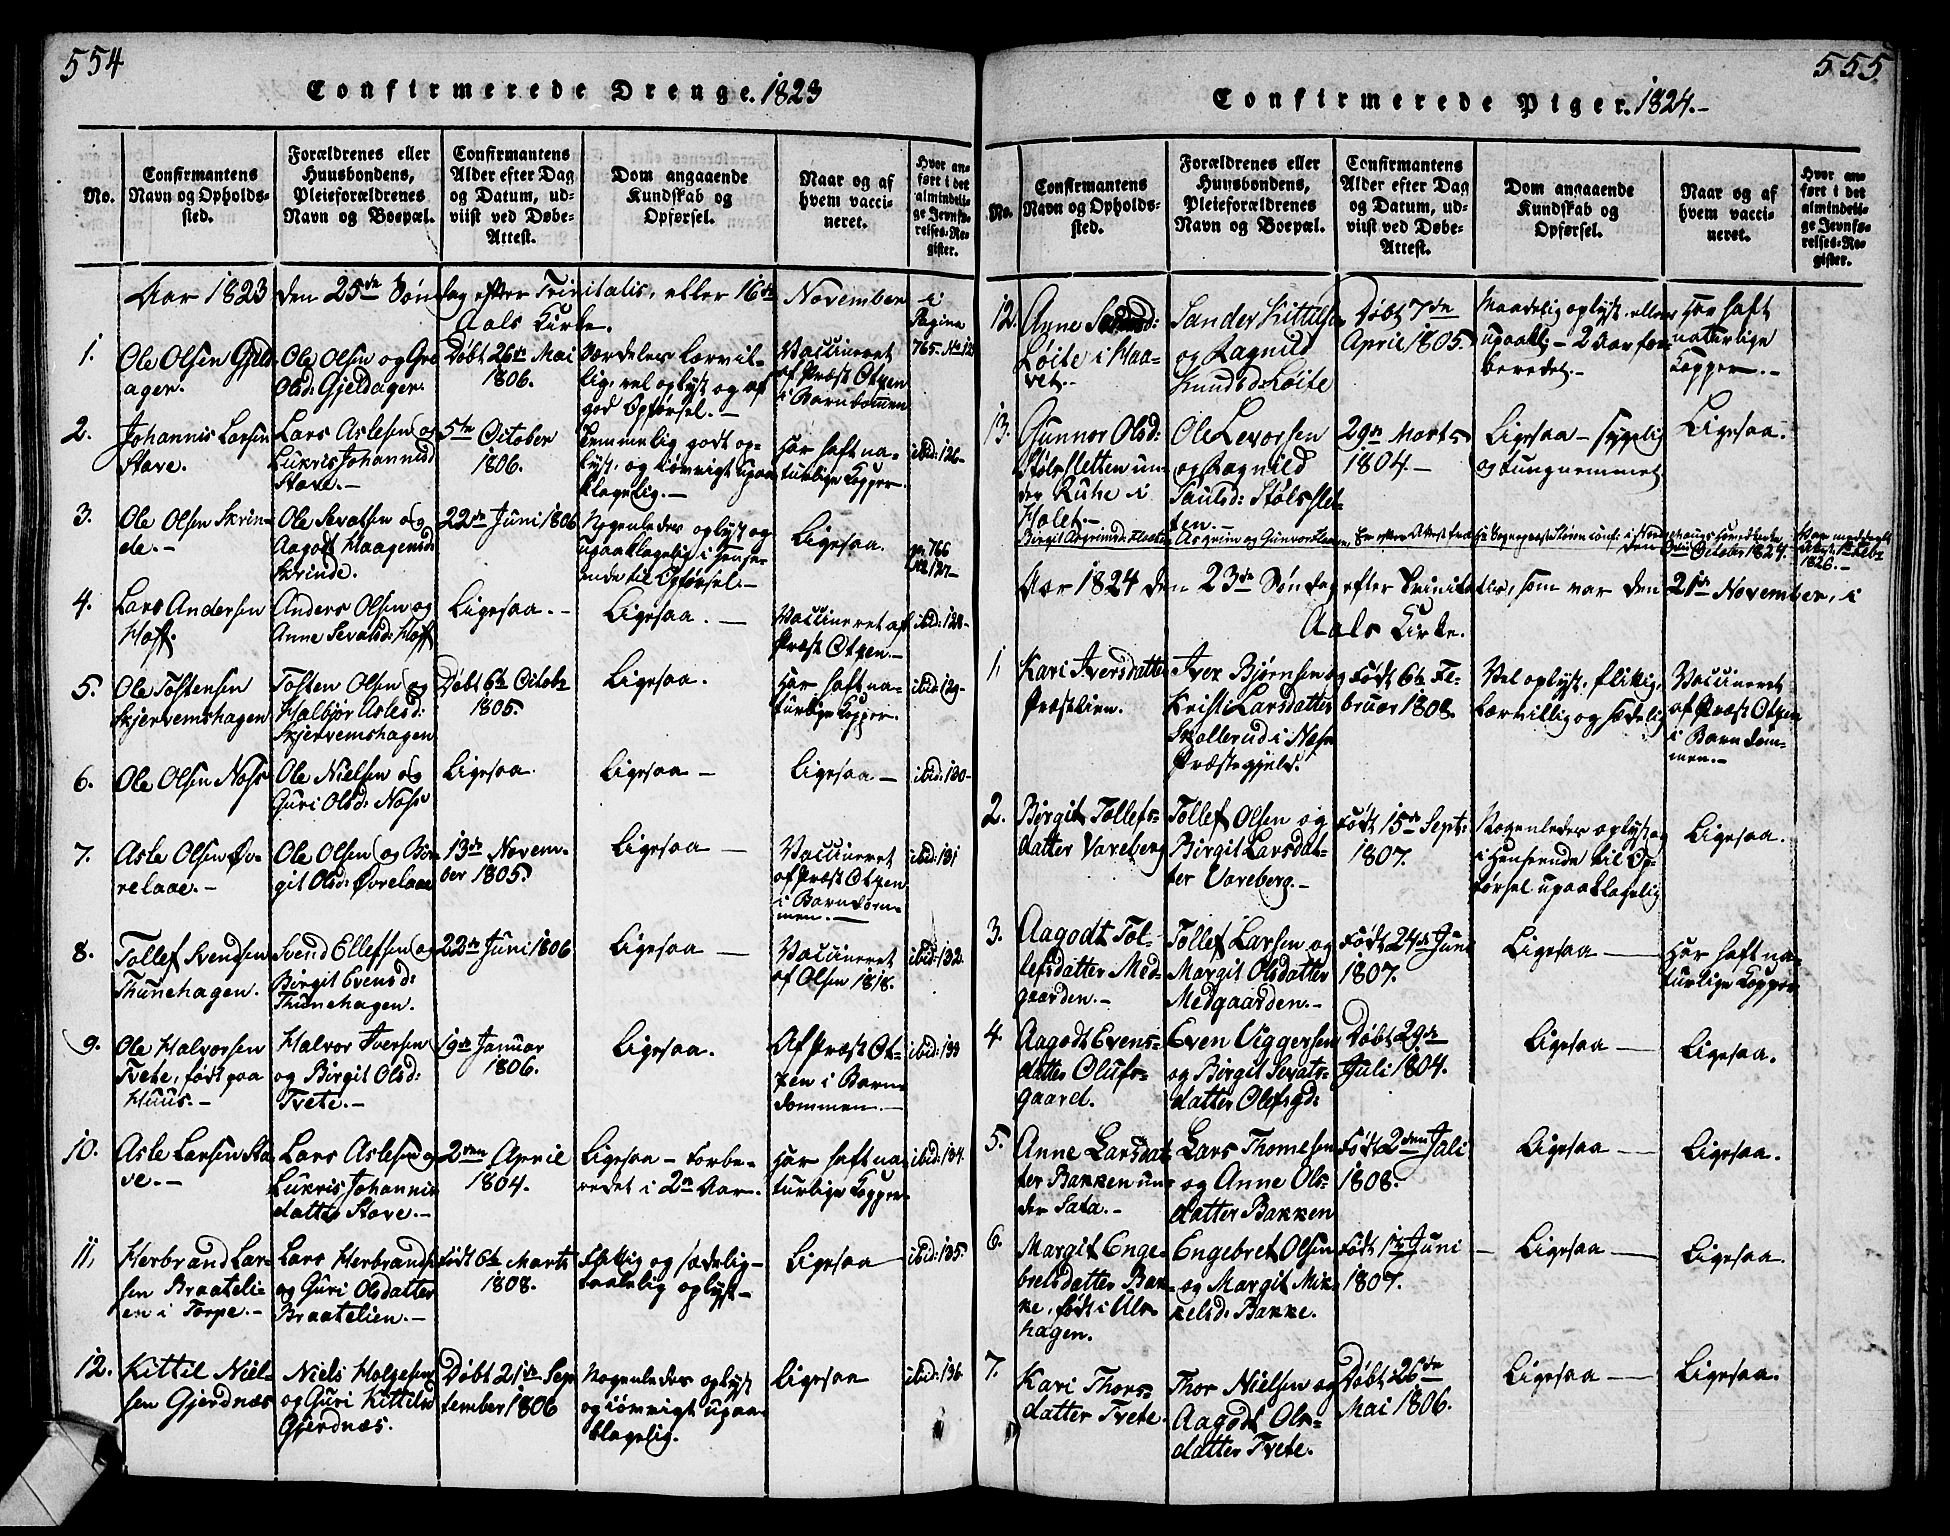 554
Confirmerede Drenge. 1823
No.
Confirmantens
Navn og Opholds-
sted.
Forældrenes eller
Huusbondens,
Pleieforældrenes
Navn og Boepæl.
Confirmantens
Alder efter Dag
og Datum, ud-
viist ved Døbe-
Attest.
Dom angaaende
Kundskab og
Opførsel.
Naar og af
hvem vacci-
neret.
Hvor an-
ført i det
almindeli-
ge Jevnfø-
relses-Re-
gister.
Aar 1823 den 25de Søndag efter Trinitatis, eller 16de November i
Aals Kirke.
Pagina
1.
Ole Olsen Gjeld-
ager.
Ole Olsen og Gro
Olsd: Gjeldager.
Døbt 26de Mai
1806.
Særdeles lærvil-
lig, vel oplyst og af
god Opførsel.-
Vaccineret
af Præst Otzen
i Barndommen
765. No 12
2.
Johannis Larsen
Stave.
Lars Aslesen og
Lukris Johannisd
Stave.-
5te October
1806.
Temmelig godt op-
lyst, og iøvrigt upaa-
klagelig.-
Har haft na-
turlige Kopper
ibid: 126-
3.
Ole Olsen Skrin-
de.-
Ole Sevatsen og
Aagodt Haagensd:
Skrinde.
22de Juni 1806
Nogenledes oplyst og
upaaklagelig i Hense-
ende til Opførsel.-
Ligesaa.
pa 766
No 127-
4.
Lars Andersen
Hoff.
Anders Olsen og
Anne Sevatsd: Hoff
Ligesaa.-
Ligesaa.-
Vaccineret af
Præst Otzen.-
ibid: 128-
5.
Ole Tostensen
Skjervemshagen
Tosten Olsen og
Halbjør Aslesd:
Skjervemshagen
Døbt 6te Octob:
1805.
Ligesaa.
Har haft na-
turlige Kopper.
ibid: 129-
6.
Ole Olsen Noss
Ole Nielsen og
Guri Olsd: Noss
Ligesaa.
Ligesaa-
Ligesaa-
ibid: 130-
7.
Asle Olsen Øv-
relaae.-
Ole Olsen og Bir-
git Olsd: Øvrelaae
13de Novem-
ber 1805.
Ligesaa-
Vaccineret
af Præst Otzen
i Barndom-
men.-
ibid: 131
8.
Tollef Svendsen
Thunehagen.
Svend Ellefsen og
Birgit Evensd:
Thunehagen.
22de Juni 1806
Ligesaa-
Vaccineret
af Olsen 1818.
ibid: 132
9.
Ole Halvorsen
Tvete, født paa
Huus.-
Halvor Iversen
og Birgit Olsd:
Tvete.-
19de Januar
1806.
Ligesaa.
Af Præst Ot-
zen i Barn-
dommen.-
ibid: 133
10.
Asle Larsen Sta-
ve.-
Lars Aslesen og
Lukris Johannis
datter Stave.-
2den April
1804.
Ligesaa - Forbe-
redet i 2de Aar.-
Har haft na-
turlige Kopper
ibid: 134.
11.
Herbrand Lar-
sen Braateli-
en i Torpe.-
Lars Herbrands:
og Guri Olsdatter
Braatelien.-
Født 6te Marts
1808.
Flittig og sædelig-
taalelig oplyst-
Ligesaa
ibid: 135.
12.
Kittil Niel-
sen Gjerdnæs
Niels Holgesen
og Guri Kittilsd
Gjerdnæs.
Døbt 21de Sep
tember 1806
Nogenledes oplyst
og iøvrigt upaa-
klagelig.
Ligesaa
ibid: 136
555
Confirmerede Piger. 1824.-
No.
Confirmantens
Navn og Opholds-
sted.
Forældrenes eller
Huusbondens,
Pleieforældrenes
Navn og Boepæl.
Confirmantens
Alder efter Dag
og Datum, ud-
viist ved Døbe-
Attest.
Dom angaaende
Kundskab og
Opførsel.
Naar og af
hvem vacci-
neret.
Hvor an-
ført i det
almindeli-
ge Jevnfø-
relses-Re-
gister.
12.
Anne
Løite i Haa-
vet.-
Sander Kittilsen
og Ragnild
Knudsd: Løite
Døbt 7de
April 1805.
Maadelig oplyst, ellers
upaakl:- 2 Aar for-
beredet.-
Har haft
naturlige
Kopper.-
13.
Gunnor Olsd:
Stølssletten un-
der Ruhe i
Holet.-
Ole Levorsen
og Ragnild
Paulsd: Stølsslet-
ten.-
29de Marts
1804.-
Ligesaa - sygelig
og tungnemmet
Ligesaa.
Birgit Asgrimsd:
Asgrim og Gunvor
October 1824.
1826.-
Aar 1824 den 23de Søndag efter Trinitatis, som var den 21de November, i
Aals Kirke.
1.
Kari Iversdatter
Præstlien.
Iver Bjørnsen og
Kristi Larsdatter
Skollerud i Næss
Præstegjeld.
Født 6te Fe-
bruar 1808.
Vel oplyst, flittig,
lærvillig og sædelig
Vaccineret
af Præst Otzen
i Barndom-
men.-
2.
Birgit Tollefs-
datter Vareberg
Tollef Olsen og
Birgit Larsdat-
ter Vareberg.-
Født 15de Sept:
1807.
Nogenledes oplyst og
i Henseende til Op-
førsel upaaklagelig
Ligesaa.
3.
Aagodt Tol-
lefsdatter Med-
gaarden.-
Tollef Larsen og
Margit Olsdatter
Medgaarden.-
Født 24de Juni
1807.
Ligesaa-
Har haft na-
turlige Kopper
4.
Aagodt Evens-
datter Olufs-
gaard.
Even Viggersen
og Birgit Sevats-
datter Olefsgd:
Døbt 29de
Juli 1804.
Ligesaa-
Ligesaa.
5.
Anne Larsdat
ter Bakken un-
der Sata.-
Lars Thomesen
og Anne Ols-
datter Bakken
Født 2den Juli
1808.
Ligesaa-
Ligesaa.
6.
Margit Enge-
bretsdatter Bak-
ke, født i Uls-
hagen.
Engebret Olsen
og Margit Mik-
kelsd: Bakke.
Født 1te Juni
1807.
Ligesaa-
Ligesaa.
7.
Kari Thors-
datter Tvete.
Thor Nielsen og
Aagodt Ols-
datter Tvete.
Døbt 26de
Mai 1806.
Ligesaa-
Ligesaa.